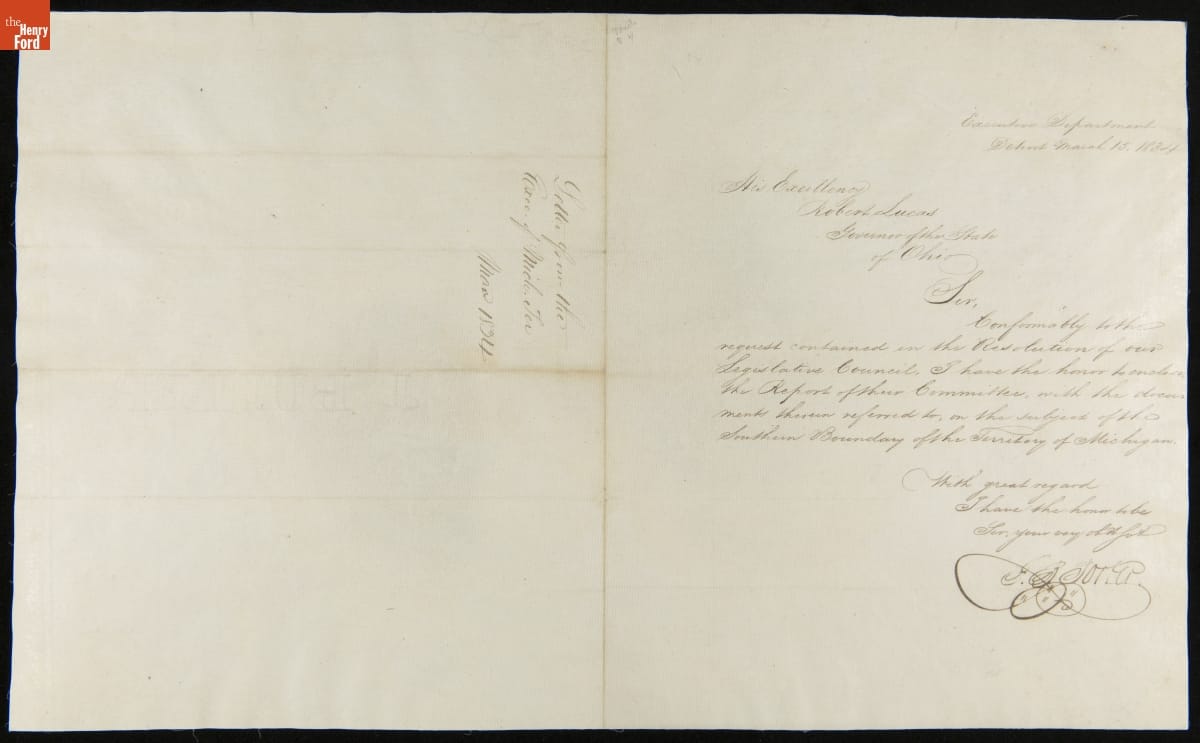 the
Henry
Ford
Letter from the
Exec. of Mich. Ter
Mar 1834
Executive Department
Detroit March 15. 1834
His Excellency
Robert Lucas
Governor of the State
of Ohio
Sir,
Conformably to the
request contained in the Resolution of our
Legislative Council, I have the honor to enclose
the Report of their Committee, with the docu-
ments therein referred to, on the subject of the
Southern Boundary of the Territory of Michigan.
With great regard
I have the honor to be
Sir, your very obt Svt